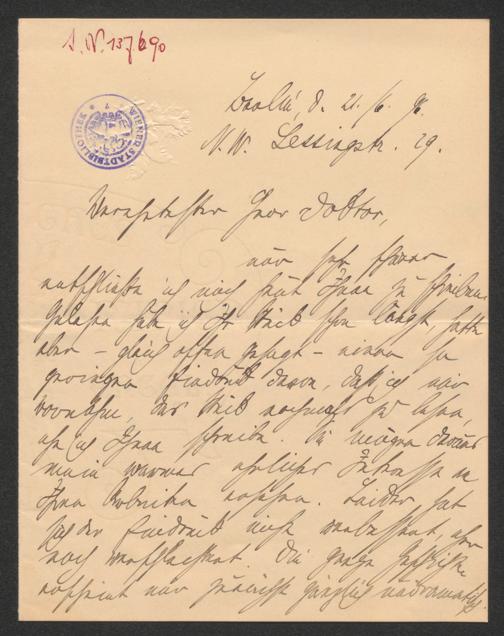 I.N. 137690
WIENER STADTBIBLIOTHEK
Berlin, d. 21./6. 96.
N.W. Lessingstr. 29.
Verehrtester Herr Doktor,
nur sehr schwer
entschließe ich mich heut Ihnen zu schreiben.
Gelesen habe ich Ihr Stück schon längst, hatte
aber – gleich offen gesagt – einen so
geringen Eindruck davon, daß ich mir
vornahm, das Stück nochmals zu lesen,
eh ich Ihnen schreibe. Sie mögen daraus
mein warmes ehrliches Interesse an
Ihren Arbeiten ersehen. Leider hat
sich der Eindruck nicht verbessert, eher
noch verschlechtert. Die ganze Geschichte
erscheint mir zunächst gänzlich undramatisch.